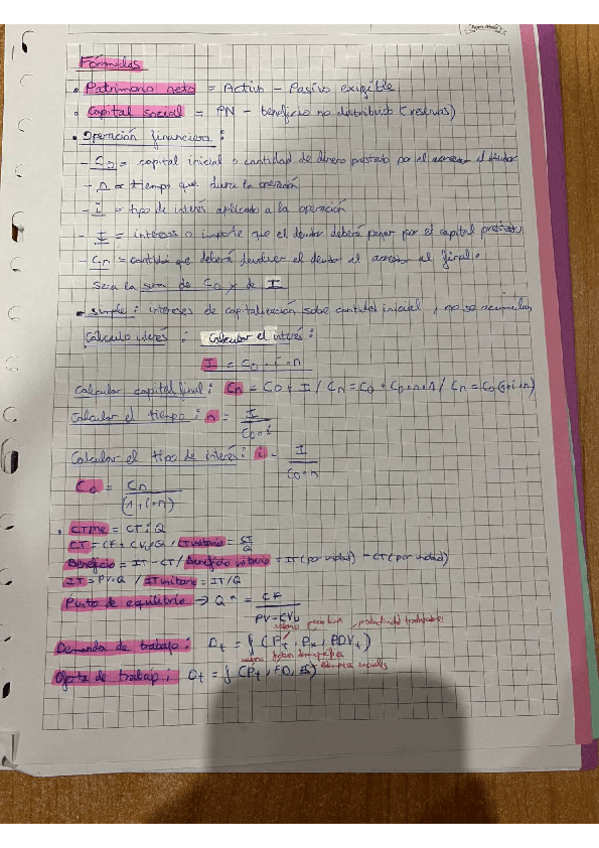 Fórmulas
• Patrimonio neto = Activo - Pasivo exigible
• Capital social = PN - beneficio no distribuido (reservas)
• Operación financiera:
- C0 = capital inicial o cantidad de dinero prestado por el acreedor al deudor
- n = tiempo que dura la operación
- i = tipo de interés aplicado a la operación
- I = intereses o importe que el deudor deberá pagar por el capital prestado
- Cn = cantidad que deberá devolver el deudor al acreedor al final.
Sera la suma de C0 y de I
• simple: intereses de capitalización sobre cantidad inicial, no se acumulan
Cálculo interés: Calcular el interés:
I = C0 · i · n
Calcular capital final: Cn = C0 + I / Cn = C0 + C0·n·i / Cn = C0(1+i·n)
Calcular el tiempo: n = I / C0·i
Calcular el tipo de interés: i = I / C0·n
C0 = Cn / (1+i·n)
• CTMe = CT : Q
CT = CF + CVu·Q / CTunitario = CT / Q
Beneficio = IT - CT / Beneficio unitario = IT (por unidad) - CT (por unidad)
IT = PV·Q / ITunitario = IT/Q
Punto de equilibrio → Q* = CF / PV-CVu
salario productividad trabajadores
Demanda de trabajo: Dt = f (Pt, Px, PDVt)
salario factor demográfico
Oferta de trabajo: Ot = f (Pt, FD, ES)